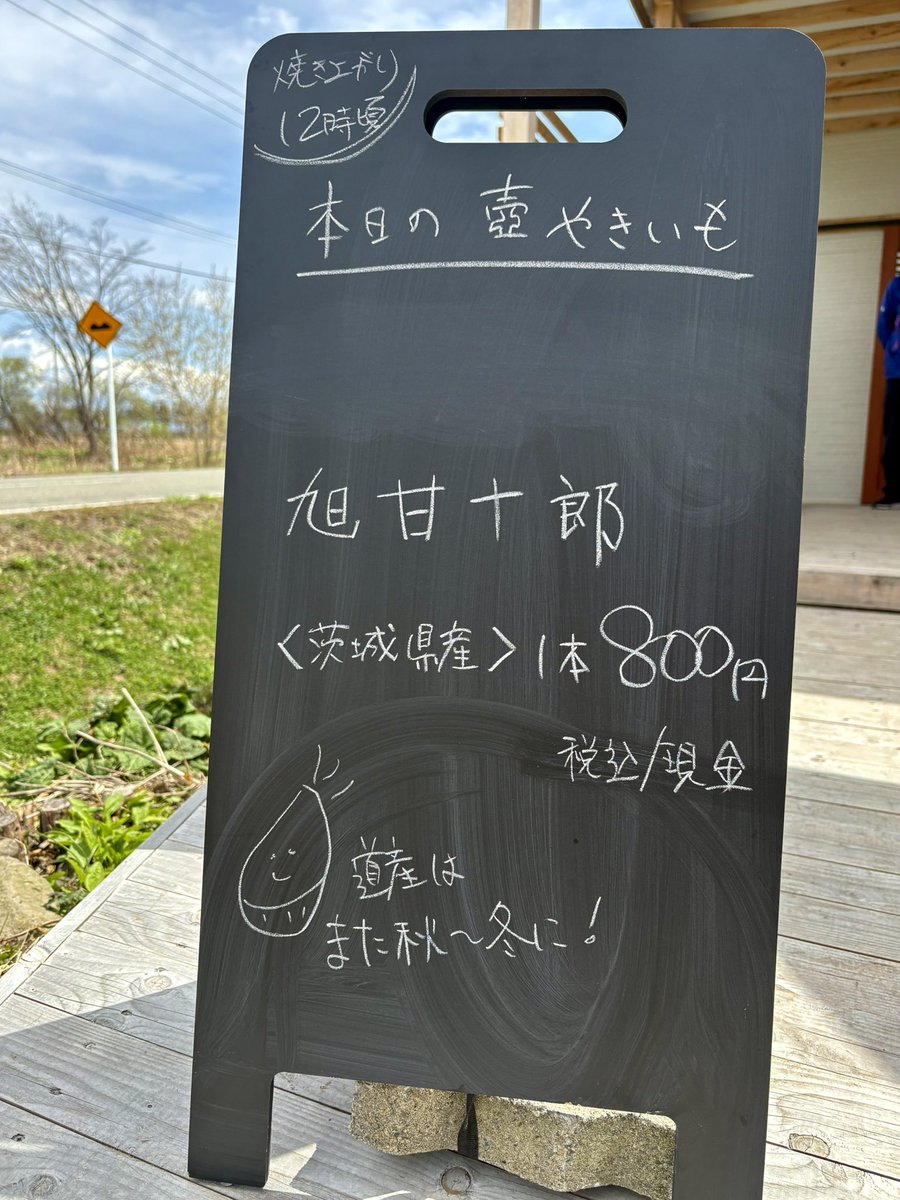 焼き上がり
12時頃
本日の 壺やきいも
旭甘十郎
<茨城県産> 1本 800円
税込/現金
道産は
また秋~冬に!